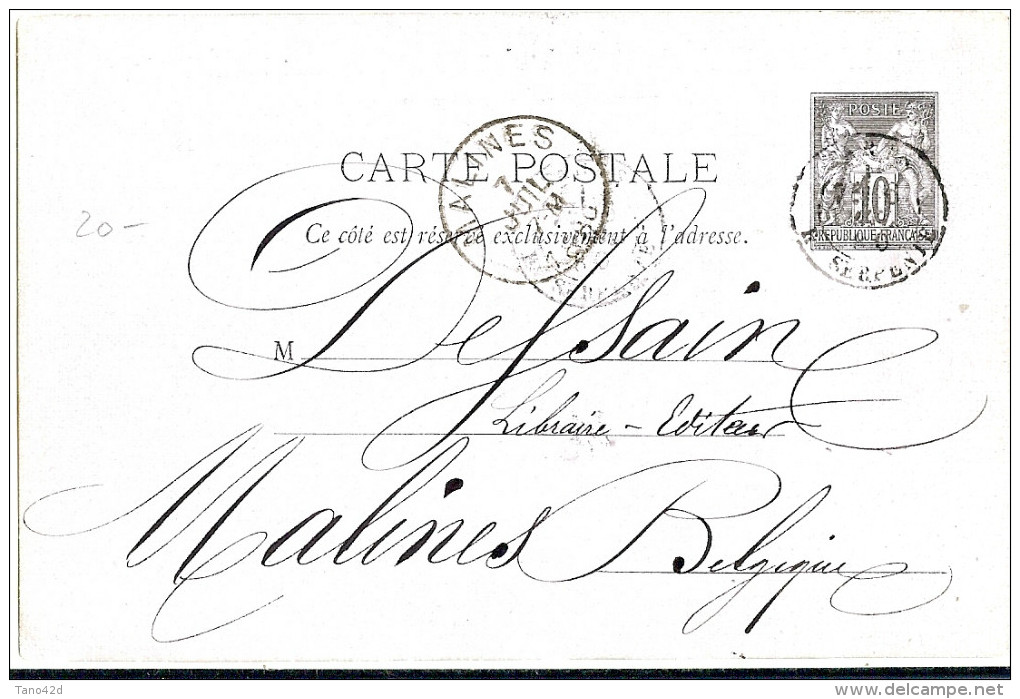 POSTE
10
REPUBLIQUE FRANCAISE
SERPENTE
MALINES
7
JUIL
CARTE POSTALE
Ce côté est réservé exclusivement à l'adresse.
20-
M Dessain
Libraire - Editeur
Malines Belgique
Tano42d
www.delcampe.net